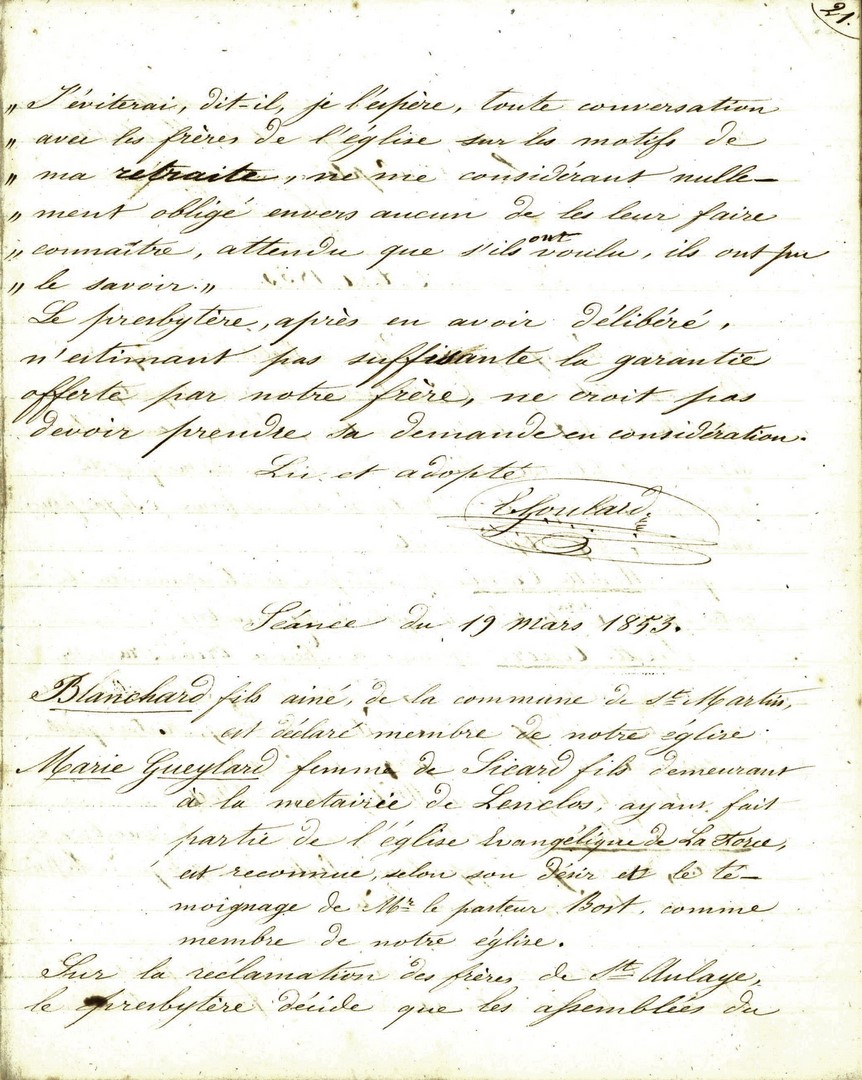 21.
„ J'éviterai, dit-il, je l'espère, toute conversation
„ avec les frères de l'église sur les motifs de
„ ma retraite, ne me considérant nulle-
„ ment obligé envers aucun de les leur faire
„ connaître, attendu que s'ils ont voulu, ils ont pu
„ le savoir. „
Le presbytère, après en avoir délibéré,
n'estimant pas suffisante la garantie
offerte par notre frère, ne croit pas
devoir prendre sa demande en considération.
Lu et adopté
Séance du 19 mars 1853.
Blanchard fils ainé, de la commune de St. Martin,
est déclaré membre de notre église
Marie Gueylard femme de Sicard fils demeurant
à la metairée de Lenclos, ayant fait
partie de l'église Evangélique de La Force,
est reconnue, selon son désir et le té-
moignage de Mr. le pasteur Bost, comme
membre de notre église.
Sur la réclamation des frères de St. Aulaye,
le presbytère décide que les assemblées du